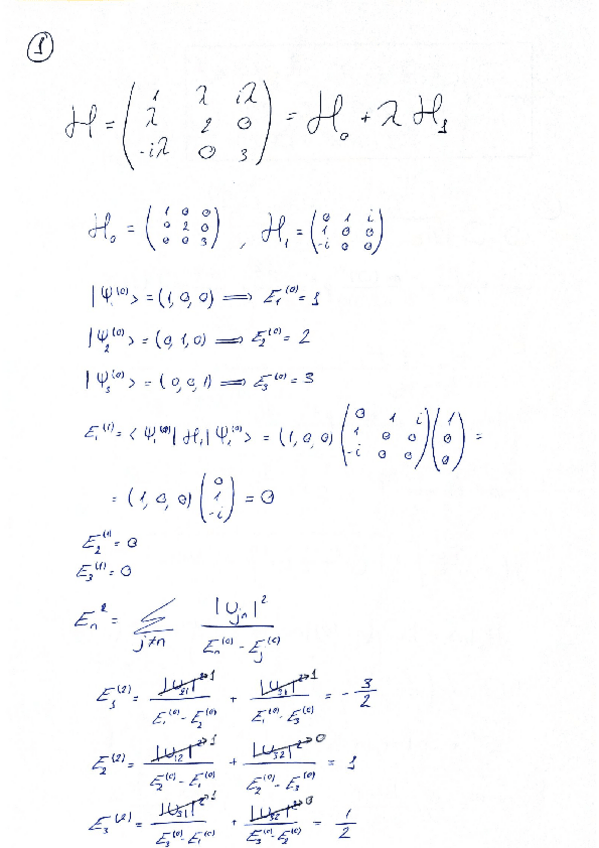 1
H = ( 1 λ iλ ; λ 2 0 ; -iλ 0 3 ) = H₀ + λ H₁
H₀ = ( 1 0 0 ; 0 2 0 ; 0 0 3 ) , H₁ = ( 0 1 i ; 1 0 0 ; -i 0 0 )
|Ψ₁⁽⁰⁾> = (1, 0, 0) ⟹ E₁⁽⁰⁾ = 1
|Ψ₂⁽⁰⁾> = (0, 1, 0) ⟹ E₂⁽⁰⁾ = 2
|Ψ₃⁽⁰⁾> = (0, 0, 1) ⟹ E₃⁽⁰⁾ = 3
E₁⁽¹⁾ = <Ψ₁⁽⁰⁾|H₁|Ψ₁⁽⁰⁾> = (1, 0, 0) ( 0 1 i ; 1 0 0 ; -i 0 0 ) ( 1 ; 0 ; 0 ) =
= (1, 0, 0) ( 0 ; 1 ; -i ) = 0
E₂⁽¹⁾ = 0
E₃⁽¹⁾ = 0
Eₙ² = Σ_{j≠n} |U_{jn}|² / (Eₙ⁽⁰⁾ - Eⱼ⁽⁰⁾)
E₁⁽²⁾ = |U₂₁|²→1 / (E₁⁽⁰⁾ - E₂⁽⁰⁾) + |U₃₁|²→1 / (E₁⁽⁰⁾ - E₃⁽⁰⁾) = - 3/2
E₂⁽²⁾ = |U₁₂|²→1 / (E₂⁽⁰⁾ - E₁⁽⁰⁾) + |U₃₂|²→0 / (E₂⁽⁰⁾ - E₃⁽⁰⁾) = 1
E₃⁽²⁾ = |U₃₁|²→1 / (E₃⁽⁰⁾ - E₁⁽⁰⁾) + |U₃₂|²→0 / (E₃⁽⁰⁾ - E₂⁽⁰⁾) = 1/2